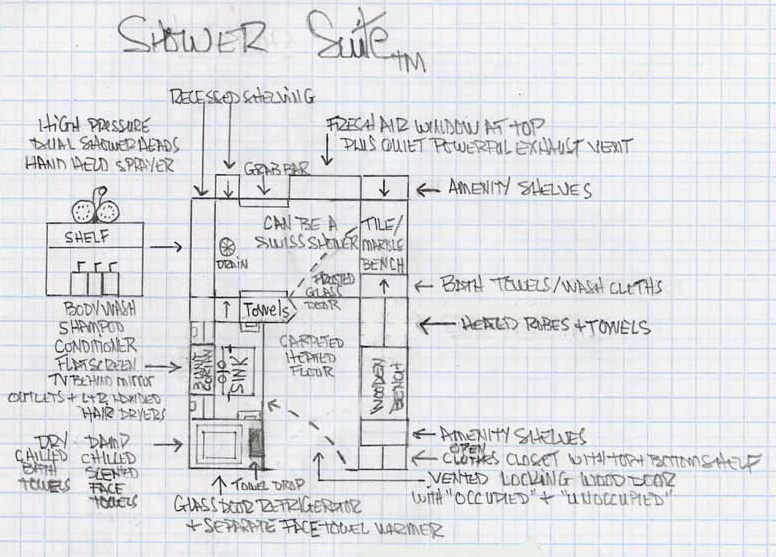 SHOWER Suite TM
RECESSED SHELVING
HIGH PRESSURE
DUAL SHOWER HEADS
HAND HELD SPRAYER
FRESH AIR WINDOW AT TOP
PLUS QUIET POWERFUL EXHAUST VENT
GRAB BAR
AMENITY SHELVES
SHELF
CAN BE A
SWISS SHOWER
TILE/
MARBLE
BENCH
DRAIN
FROSTED
GLASS
DOOR
BATH TOWELS/WASH CLOTHS
Towels
BODY WASH
SHAMPOO
CONDITIONER
HEATED ROBES + TOWELS
CARPETED
HEATED
FLOOR
FLATSCREEN
TV BEHIND MIRROR
OUTLETS + L+R HANDED
HAIR DRYERS
SINK
WOODEN
BENCH
DRY
CHILLED
BATH
TOWELS
DAMP
CHILLED
SCENTED
FACE
TOWELS
AMENITY SHELVES
OPEN
CLOTHES CLOSET WITH TOP + BOTTOM SHELF
TOWEL DROP
VENTED LOCKING WOOD DOOR
WITH "OCCUPIED" + "UNOCCUPIED"
GLASS DOOR REFRIGERATOR
+ SEPARATE FACE TOWEL WARMER